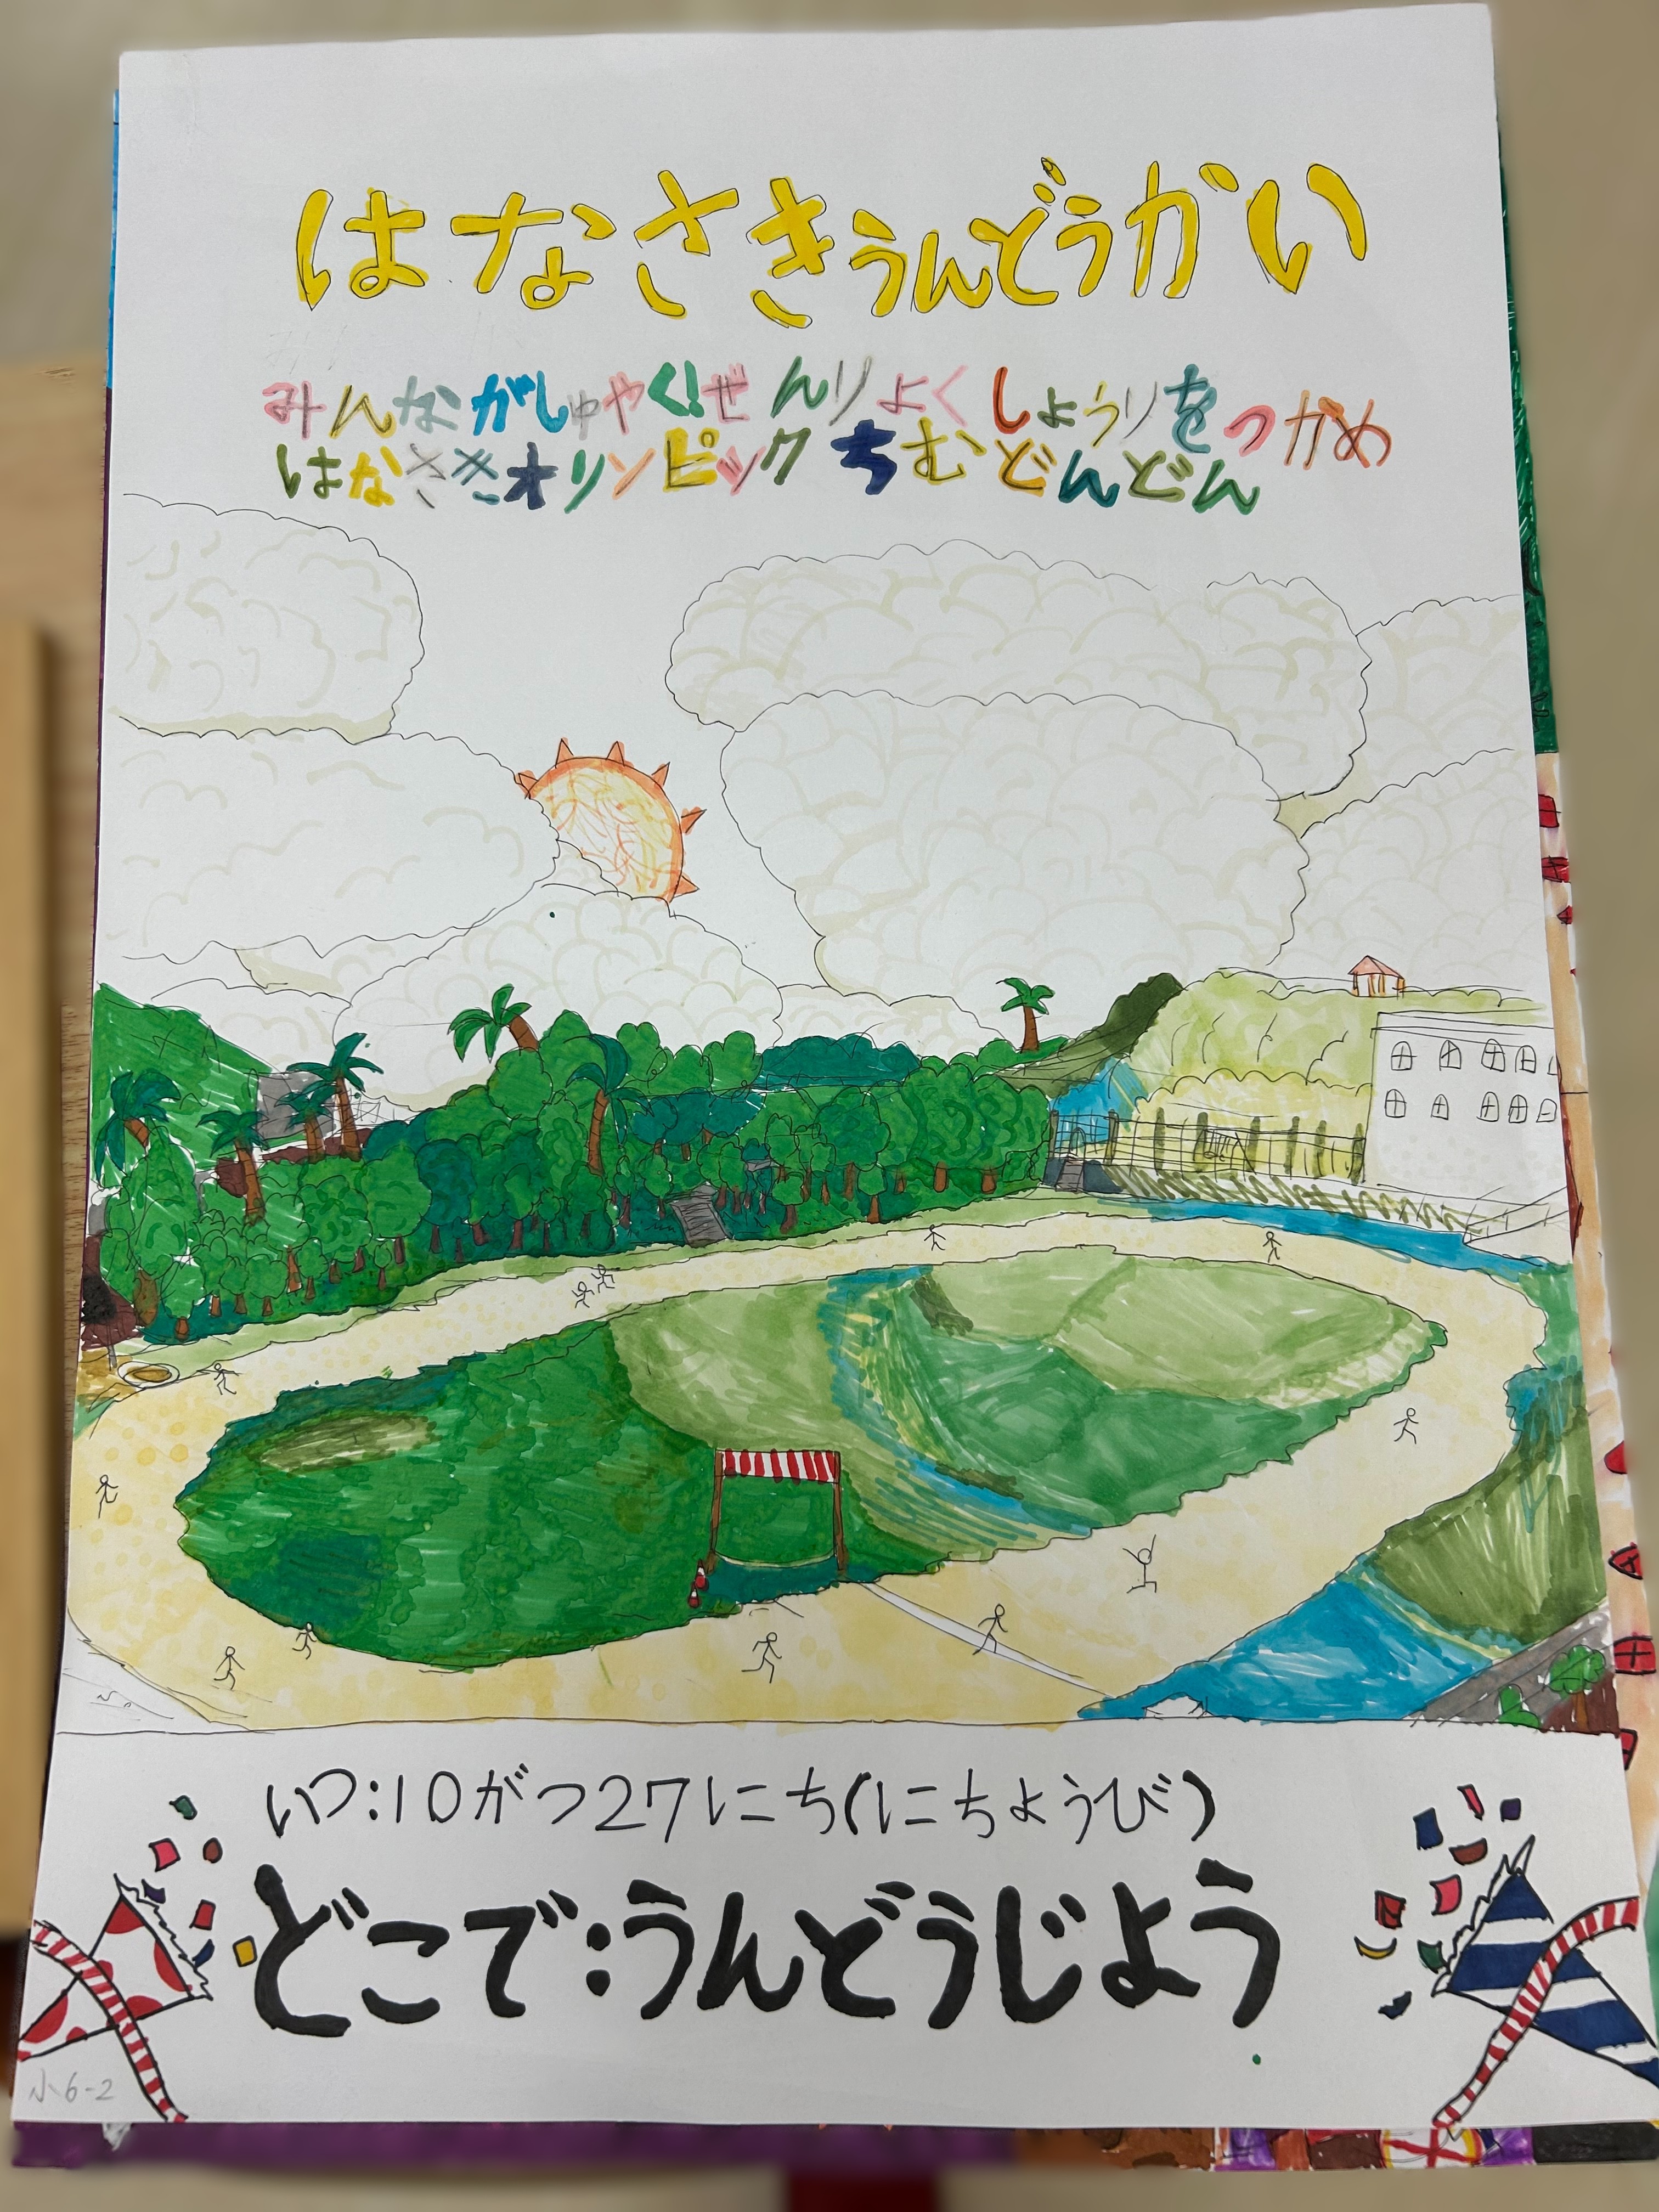 はなさきうんどうかい
みんながしゅやく!ぜんりょくしょうりをつかめ
はなさきオリンピックちむどんどん
いつ:10がつ27にち(にちようび)
どこで:うんどうじよう
小6-2